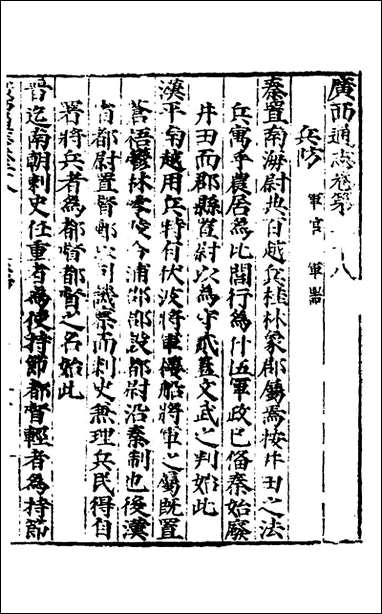 廣西通志卷第 十八
兵防 軍官 軍器
秦置南海尉典百越兵桂林象郡屬焉按井田之法
兵寓乎農居為比閭行為什伍軍政已備秦始廢
井田而郡縣置尉以為守貳蓋文武之判始此
漢平南越用兵特有伏波將軍樓船將軍之屬既置
蒼梧欝林零陵合浦郡郡設都尉沿秦制也後漢
省都尉置督郵以司譏察而刺史兼理兵民得自
署將兵者為都督都督之名始此
晉迄南朝刺史任重者為使持節都督輕者為持節